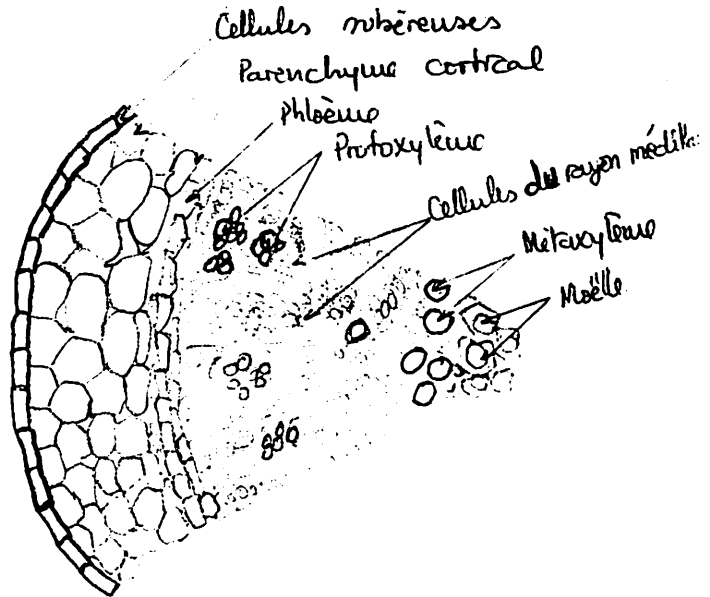 Cellules subéreuses
Parenchyme cortical
Phloème
Protoxylème
Cellules du rayon
Métaxylème
Moëlle